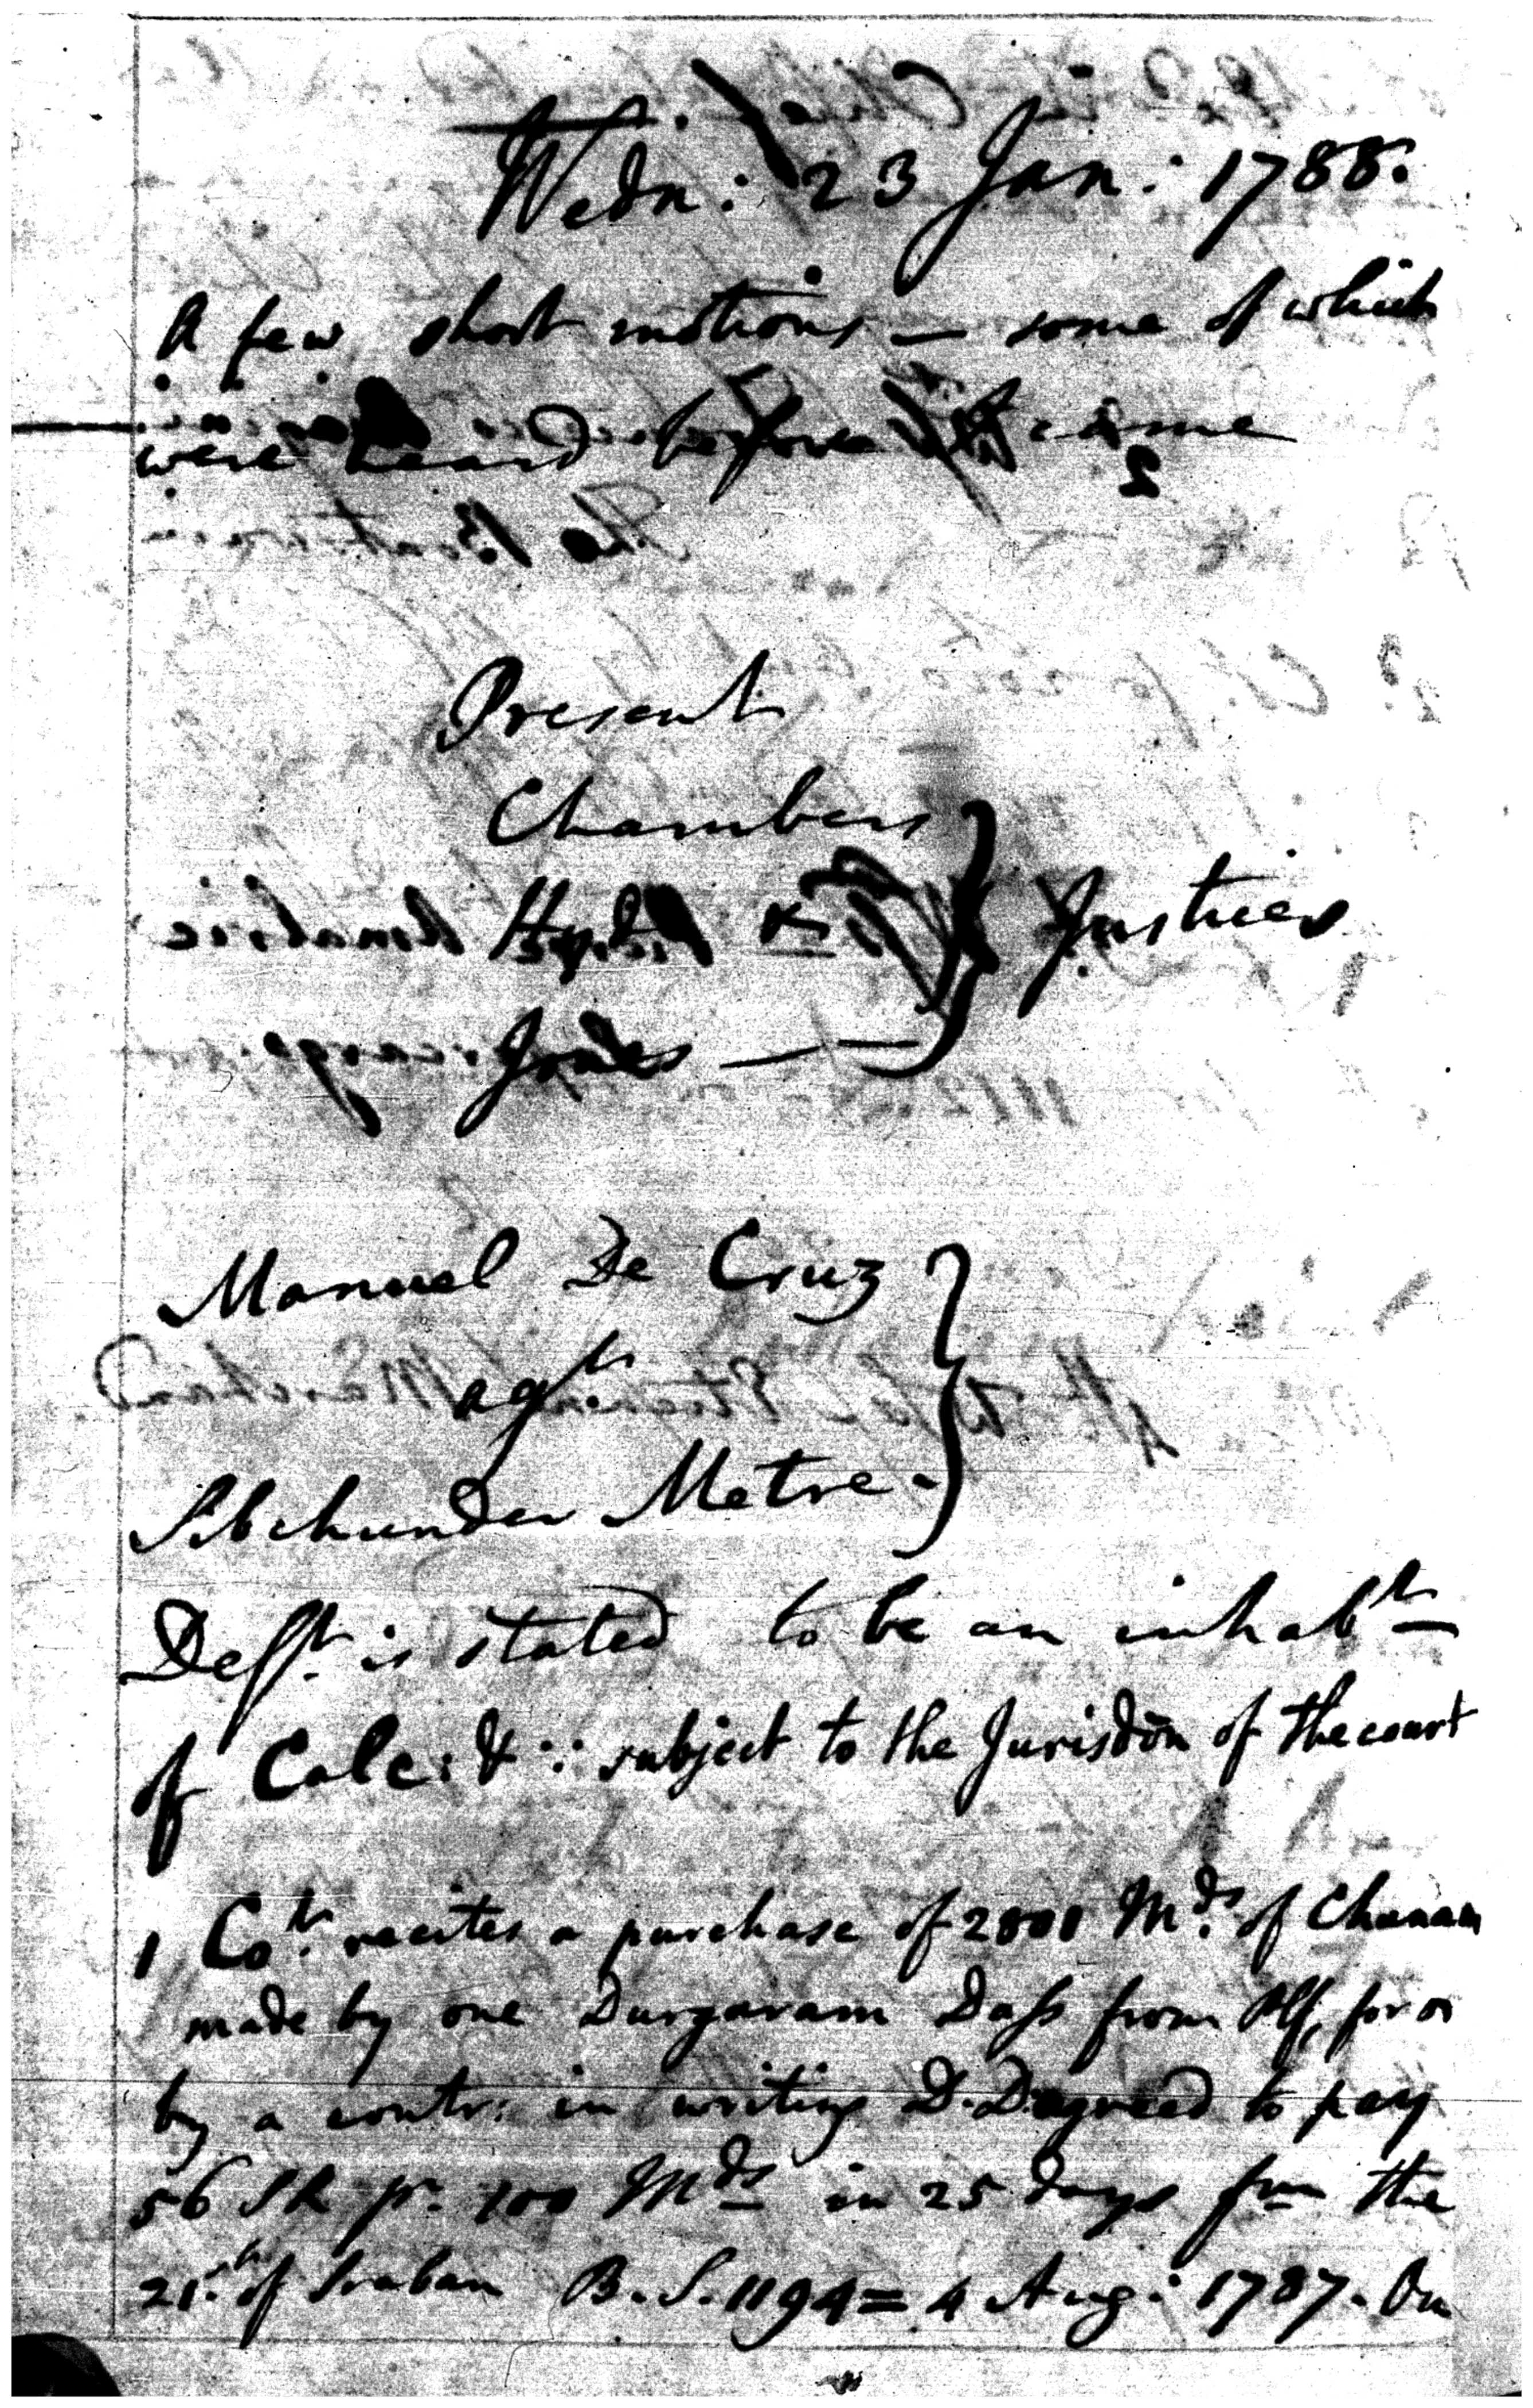 Wedn: 23 Jan: 1788.
A few short motions — some of which
were heard before I came
Present
Chambers
Hyde &
Jones —
} Justices
Manuel De Cruz
agt.
Sibchunder Metre.
Deft. is stated to be an inhabt.
of Calc: & ∵ subject to the Jurisdon of the court
1 Cot. recites a purchase of 2800 Mds. of Chunam
made by one Durgaram Dass from Plf, for or
by a contr: in writing D. D. agreed to pay
56 SR pr. 100 Mds in 25 days from the
21st. of Sraban B.S. 1194 = 4 Aug: 1787. On